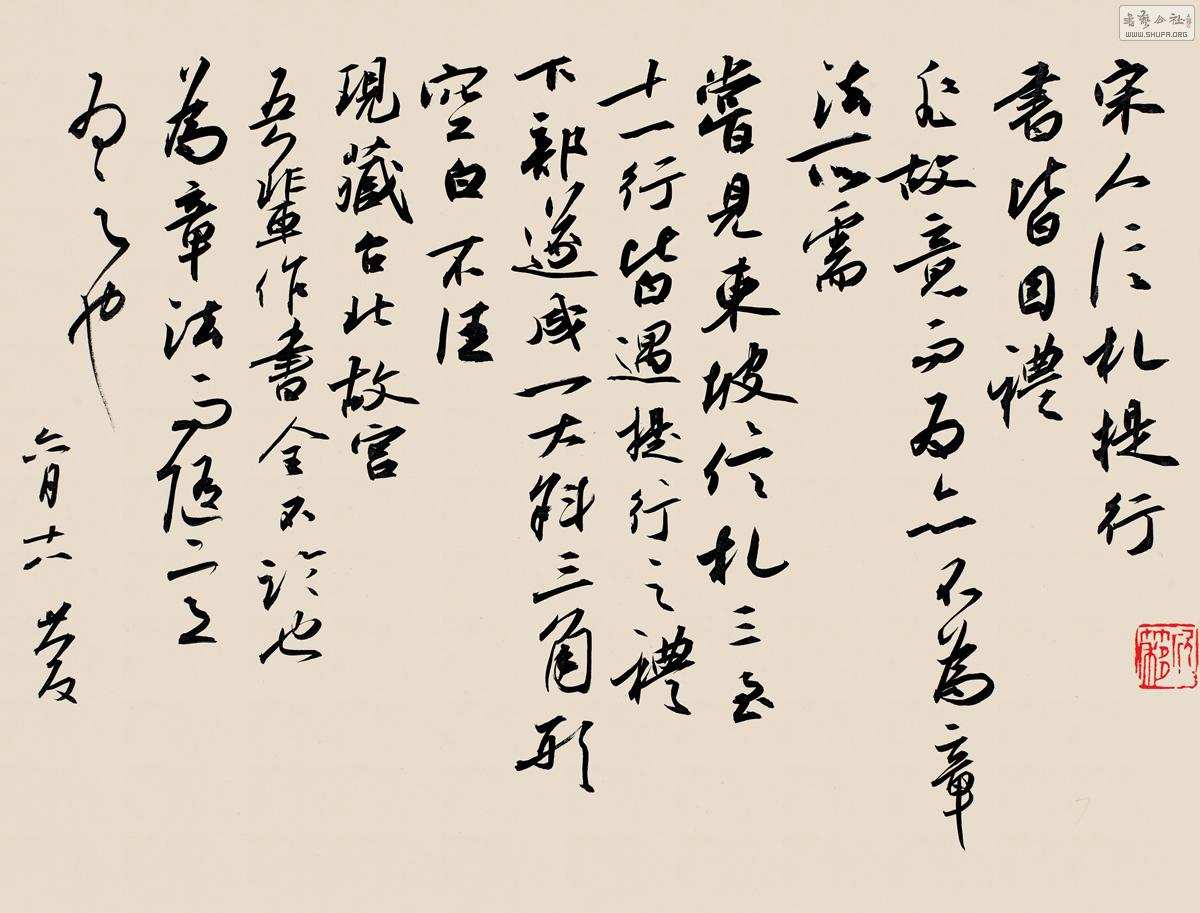 宋人信札提行
書皆因禮
非故意而为亦不為章
法所需
嘗見東坡信札三至
十一行皆遇提行之禮
下部遂成一大斜三角形
空白不佳
現藏台北故宫
吾輩作書全不論也
為章法而隨之
为之也
六月十六
書藝公社
WWW.SHUFA.ORG